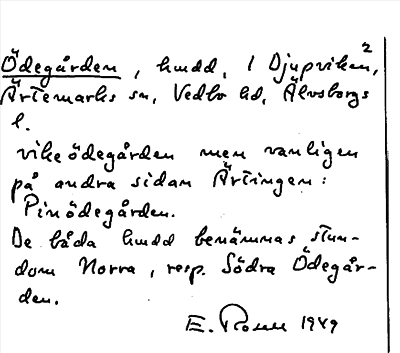 Ödegården, hmdd, 1 Djupviken²,
Ärtemarks sn, Vedbo hd, Älvsborgs
l.
vikeödegården men vanligen
på andra sidan Ärtingen:
Pinödegården.
De båda hmdd benämnas stun-
dom Norra, resp. Södra Ödegår-
den.
E. Rosell 1949